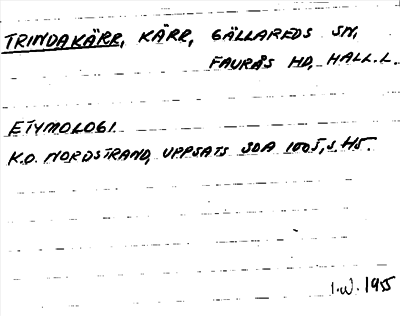 TRINDAKÄRR, KÄRR, GÄLLAREDS SN,
FAURÅS HD, HALL.L.
ETYMOLOGI
K.O. NORDSTRAND, UPPSATS SOA 1005, S. 45.
I.W. 1955